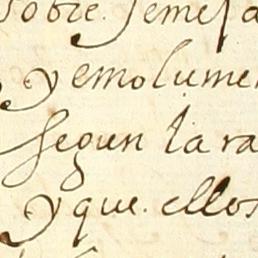 sobre. semeja
y emolumen
segun la ra
y que. ellos